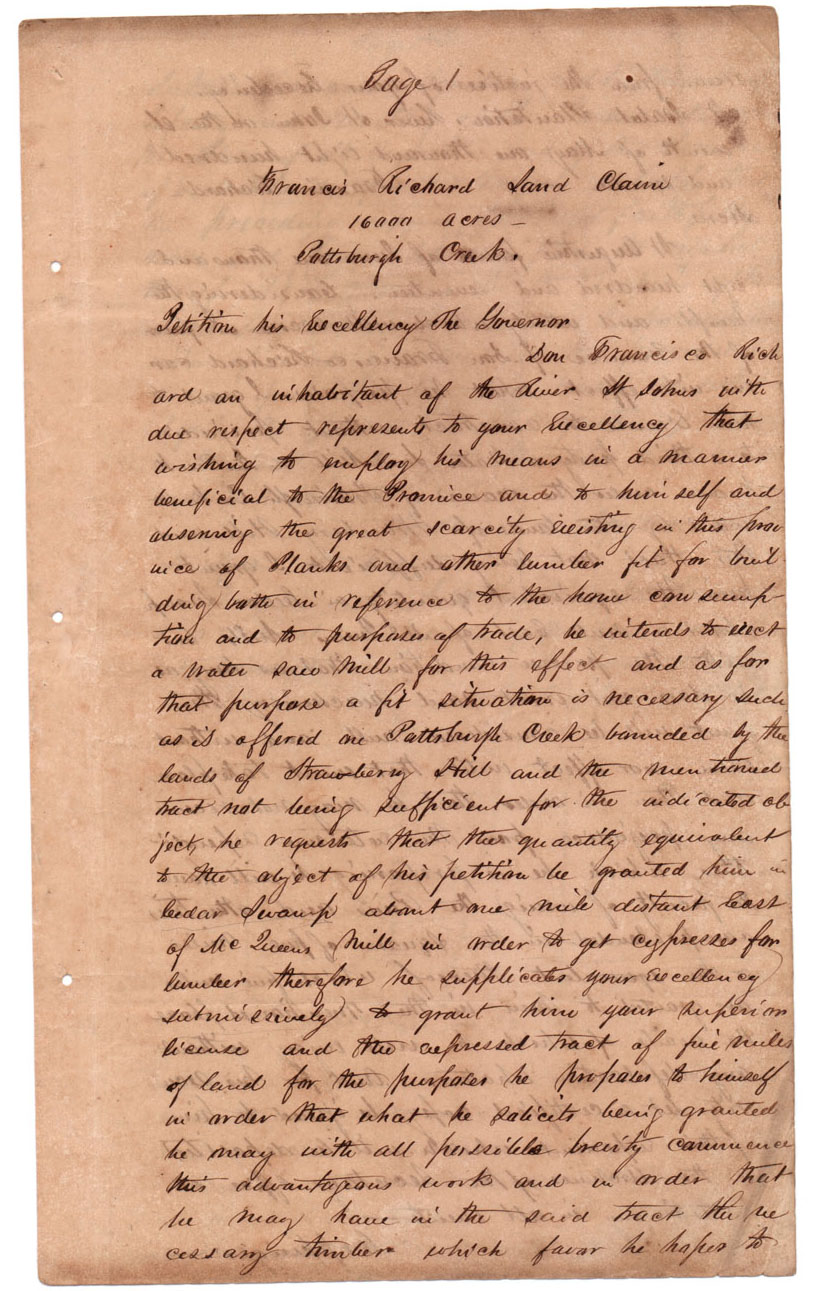 Page 1
Francis Richard Land Claim
16000 acres –
Pottsburgh Creek.
Petition his Excellency The Governor
Don Francisco Rich
ard an inhabitant of the River St Johns with
due respect represents to your Excellency that
wishing to employ his means in a manner
beneficial to the Province and to himself and
observing the great scarcity existing in this prov
nice of Planks and other lumber fit for buil-
ding both in reference to the home consump-
tion and to purposes of trade, he intends to erect
a water saw Mill for this effect and as for
that purpose a fit situation is necessary such
as is offered on Pottsburgh Creek bounded by the
lands of Strawberry Hill and the mentioned
tract not being sufficient for the indicated ob-
ject, he requests that the quantity equivalent
to the object of his petition be granted him in
Cedar Swamp about one mile distant East
of McQueens Mill in order to get cypresses for
lumber therefore he supplicates your Excellency
submissively to grant him your superior
license and the expressed tract of five miles
of land for the purposes he proposes to himself
in order that what he solicits being granted
he may with all possible brevity commence
this advantageous work and in order that
he may have in the said tract the ne
cessary timber which favor he hopes to